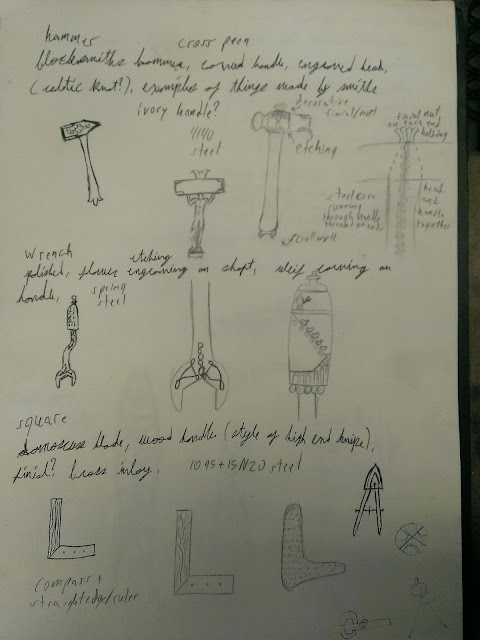 hammer
cross peen
blacksmiths hammer, carved handle, engraved head,
(celtic knot?), examples of things made by smiths
ivory handle?
decorative
finial/nut
finial nut
on each end
holding
4140
steel
etching
steel core
running
through handle,
threaded on ends
head
and
handle
together
scrollwork
wrench
etching
polished, flower engraving on shaft, leaf carving on
handle,
spring
steel
square
damascus blade, wood handle (style of high end knife),
finial? brass inlay,
1095+15N20 steel
compass +
straightedge/ruler